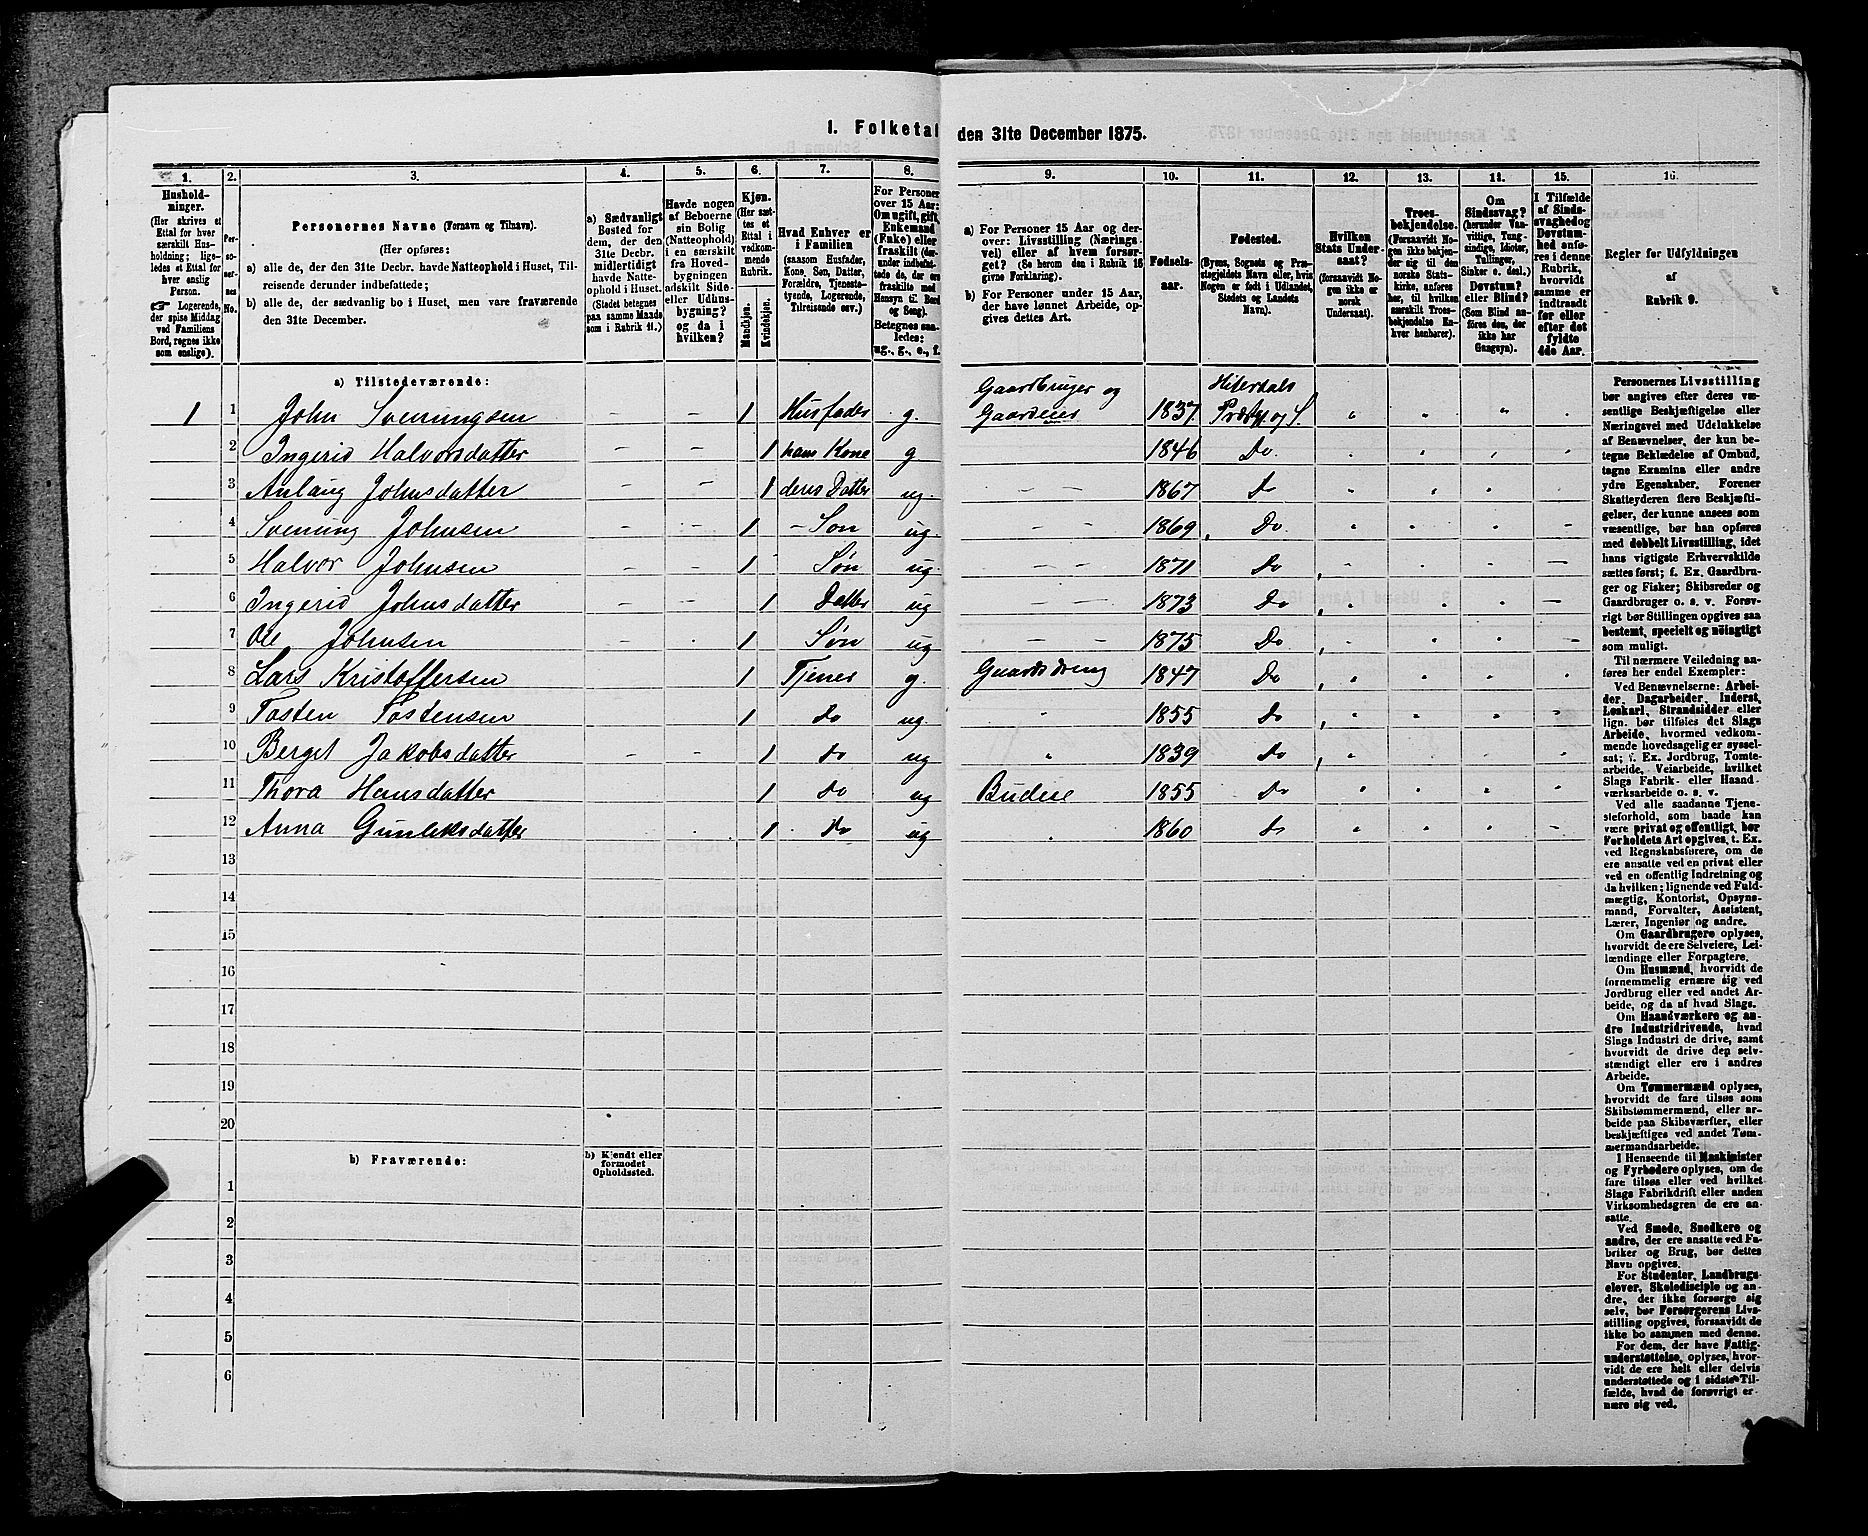 1. Folketal den 31te December 1875.
1. 2. 3. 4. 5. 6. 7. 8. 9. 10. 11. 12. 13. 14. 15. 16.
Hushold-
ninger.
(Her skrives et
Ettal for hver
særskilt Hus-
holdning; lige-
ledes et Ettal for
hver enslig
Person.
Logerende,
der spise Middag
ved Familiens
Bord, regnes ikke
som enslige).
Per-
soner-
nes
No.
Personernes Navne (Fornavn og Tilnavn).
(Her opføres:
a) alle de, der den 31te Decbr. havde Natteophold i Huset, Til-
reisende derunder indbefattede;
b) alle de, der sædvanlig bo i Huset, men vare fraværende
den 31te December.
a) Sædvanligt
Bosted for
dem, der den
31te Decbr.
midlertidigt
havde Natte-
ophold i Huset.
(Stedet betegnes
paa samme Maade
som i Rubrik 11.)
Havde nogen
af Beboerne
sin Bolig
(Natteophold)
i en særskilt
fra Hoved-
bygningen
adskilt Side-
eller Udhus-
bygning?
og da i
hvilken?
Kjøn.
(Her sæt-
tes et
Ettal i
vedkom-
mende
Rubrik.
Mandkjøn.
Kvindekjøn.
Hvad Enhver er
i Familien
(saasom Husfader,
Kone, Søn, Datter,
Forældre, Tjeneste-
tyende, Logerende,
Tilreisende osv.)
For Personer
over 15 Aar:
Om ugift, gift,
Enkemand
(Enke) eller
fraskilt (der-
under indbefat-
tede de, der ere
fraskilte med
Hensyn til Bord
og Seng).
Betegnes saa-
ledes:
ug., g., e., f.
a) For Personer 15 Aar og der-
over: Livsstilling (Nærings-
vei) eller af hvem forsør-
get? (Se herom den i Rubrik 16
givne Forklaring).
b) For Personer under 15 Aar,
der have lønnet Arbeide, op-
gives dettes Art.
Fødsels-
aar.
Fødested.
(Byens, Sognets og Præ-
stegjeldets Navn eller, hvis
Nogen er født i Udlandet,
Stedets og Landets
Navn).
Hvilken
Stats Under-
saat?
(forsaavidt No-
gen ikke er
norsk
Undersaat).
Troes-
bekjendelse.
(Forsaavidt No-
gen ikke bekjen-
der sig til den
norske Stats-
kirke, anføres
her, til hvilken
særskilt Troes-
bekjendelse En-
hver henhører).
Om
Sindssvag?
(herunder Van-
vittige, Tung-
sindige, Idioter,
Tullinger,
Sinker o. desl.)
Døvstum?
eller Blind?
(Som Blind an-
føres den, der
ikke har
Gangsyn).
I Tilfælde
af Sinds-
svaghed og
Døvstum-
hed anfø-
res i denne
Rubrik,
hvorvidt
samme er
indtraadt
før eller
efter det
fyldte
4de Aar.
Regler for Udfyldningen
af
Rubrik 9.
a) Tilstedeværende:
1 1 John Sveinungsen - - 1 Husfader g. Gaardbruger og Gaardeier 1837. Hiterdals Præstgj og S.
2 Ingerid Halvorsdatter - - 1 hans Kone g 1846 Do.
3 Anlaug Johnsdatter - - 1 deres Datter ug. - - 1867 Do
4 Svenung Johnsen - - 1 - Søn ug. - - 1869 Do.
5 Halvor Johnsen - - 1 Søn ug. - - 1871 Do
6 Ingerid Johnsdatter - - 1 Datter ug - - 1873 Do
7 Ole Johnsen - 1 Søn ug - - 1875 Do
8 Lars Kristoffersen 1 Tjener g. Gaardsdreng 1847 Do
9 Tosten Tostensen 1 do ug. " 1855 Do
10 Berget Jakobsdatter - - 1 do ug " 1839 Do
11 Thora Hansdatter 1 do ug Budeie 1855 Do
12 Anna Gunleksdatter 1 do ug 1860 Do
13
14
15
16
17
18
19
20
b) Fraværende:
b) Kjendt eller
formodet
Opholdssted.
1
2
3
4
5
6
Personernes Livsstilling
bør angives efter deres væ-
sentlige Beskjæftigelse eller
Næringsvei med Udelukkelse
af Benævnelser, der kun be-
tegne Beklædelse af Ombud,
tagne Examina eller andre
ydre Egenskaber. Forener
Skatteyderen flere Beskjæfti-
gelser, der kunne ansees som
væsentlige, bør han opføres
med dobbelt Livsstilling, idet
hans vigtigste Erhvervskilde
sættes først; f. Ex. Gaardbru-
ger og Fisker; Skibsreder og
Gaardbruger o. s. v. Forøv-
rigt bør Stillingen opgives saa
bestemt, specielt og nøiagtigt
som muligt.
Til nærmere Veiledning an-
føres her endel Exempler:
Ved Benævnelserne: Arbei-
der, Dagarbeider, Inderst,
Løskarl, Strandsidder eller
lign. bør tilføies det Slags
Arbeide, hvormed vedkom-
mende hovedsagelig er syssel-
sat; f. Ex. Jordbrug, Tomte-
arbeide, Veiarbeide, hvilket
Slags Fabrik- eller Haand-
værksarbeide o. s. v.
Ved alle saadanne Tjene-
steforhold, som baade kan
være privat og offentligt, bør
Forholdets Art opgives, t. Ex.
ved Regnskabsførere, om de
ere ansatte ved en privat eller
ved en offentlig Indretning og
da hvilken; lignende ved Fuld-
mægtig, Kontorist, Opsyns-
mand, Forvalter, Assistent,
Lærer, Ingeniør og andre.
Om Gaardbrugere oplyses,
hvorvidt de ere Selveiere, Lei-
lændinge eller Forpagtere.
Om Husmænd, hvorvidt de
fornemmelig ernære sig ved
Jordbrug eller ved andet Ar-
beide, og da af hvad Slags.
Om Haandværkere og an-
dre Industridrivende, hvad
Slags Industri de drive, samt
hvorvidt de drive den selv-
stændigt eller ere i andres
Arbeide.
Om Tømmermænd oplyses,
hvorvidt de fare tilsøs som
Skibstømmermænd, eller ar-
beide paa Skibsværfter, eller
beskjæftiges ved andet Tøm-
mermandsarbeide.
I Henseende til Maskinister
og Fyrbødere oplyses, om de
fare tilsøs eller ved hvilket
Slags Fabrikdrift eller anden
Virksomhedsgren de ere an-
satte.
Ved Smede, Snedkere og
andre, der ere ansatte ved Fa-
briker og Brug, bør dettes
Navn opgives.
For Studenter, Landbrugs-
elever, Skoledisciple og an-
dre, der ikke forsørge sig
selv, bør Forsørgerens Livs-
stilling opgives, forsaavidt de
ikke bo sammen med denne.
For dem, der have Fattig-
understøttelse, oplyses, hvor-
vidt de ere helt eller delvis
understøttede og i sidste Til-
fælde, hvad de forøvrigt er-
nære sig ved.